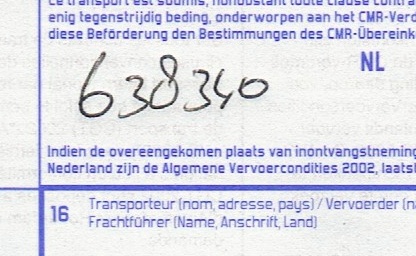 Ce transport est soumis, nonobstant toute clause contra
enig tegenstrijdig beding, onderworpen aan het CMR-Verd
diese Beförderung den Bestimmungen des CMR-Übereink
NL
638340
Indien de overeengekomen plaats van inontvangstneming
Nederland zijn de Algemene Vervoercondities 2002, laatst
16 Transporteur (nom, adresse, pays) / Vervoerder (na
Frachtführer (Name, Anschrift, Land)